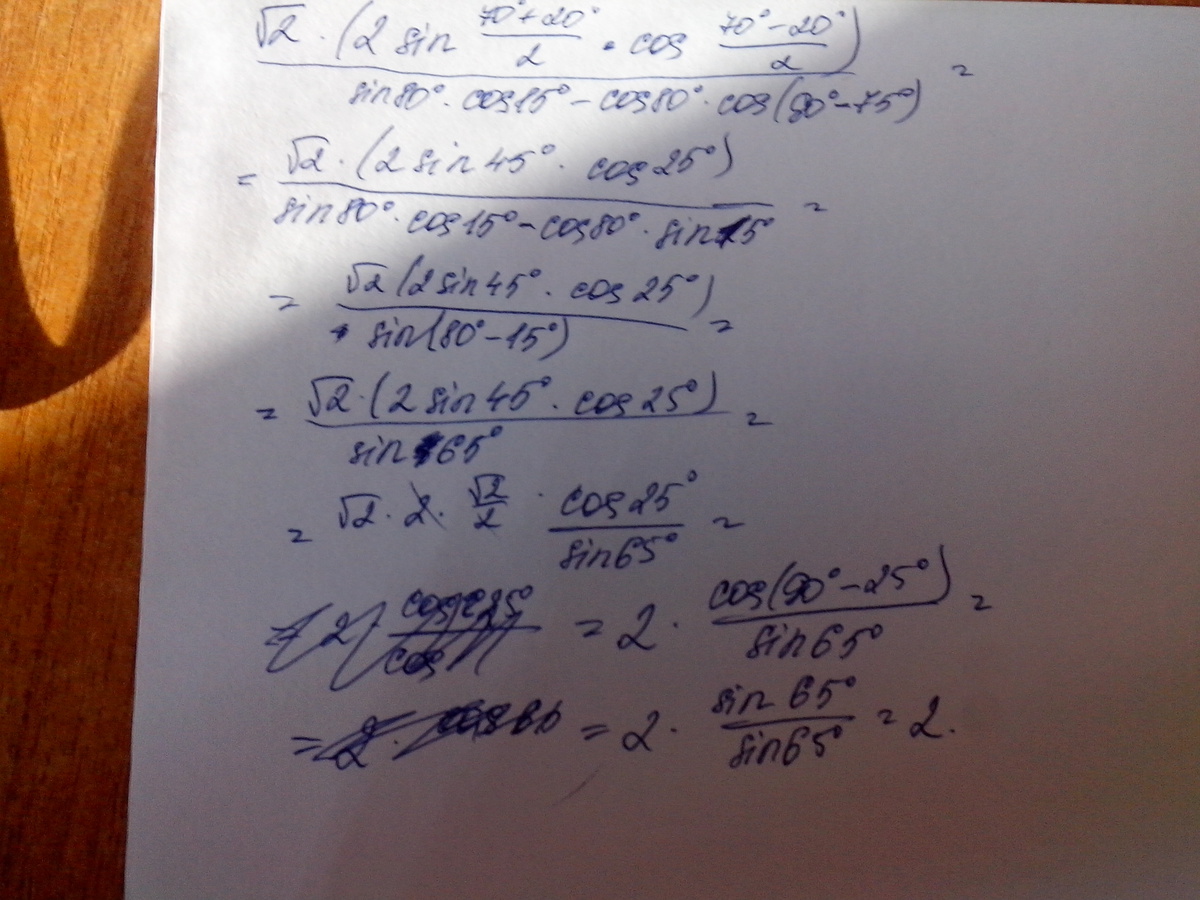 √2 · (2 sin (70°+20°)/2 · cos (70°-20°)/2) / (sin80° · cos15° - cos80° · cos(90°-75°)) =
= √2 · (2 sin 45° · cos 25°) / (sin80° · cos15° - cos80° · sin15°) =
= √2 (2 sin 45° · cos 25°) / sin(80° - 15°) =
= √2 · (2 sin 45° · cos 25°) / sin 65° =
= √2 · 2 · √2/2 · cos 25° / sin 65° =
= 2 · cos(90° - 25°) / sin 65° =
= 2 · sin 65° / sin 65° = 2.